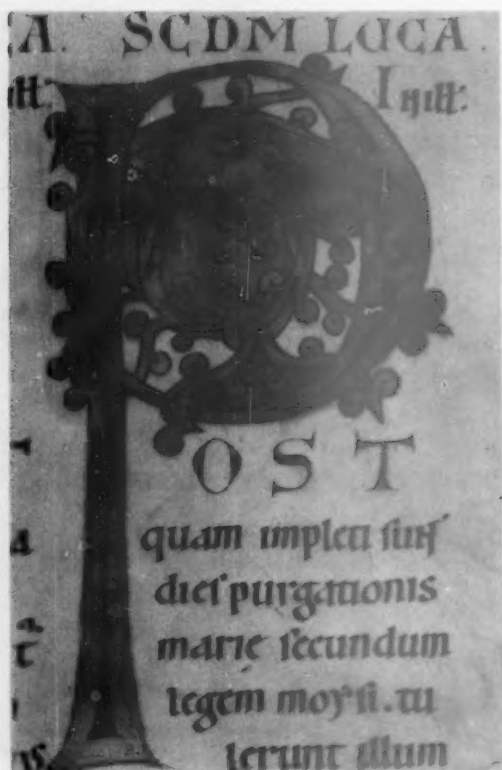 A. SCDM LUCA.
Initt:
P
OST
quam impleti sunt
dies purgationis
marie secundum
legem moysi. tu
lerunt illum